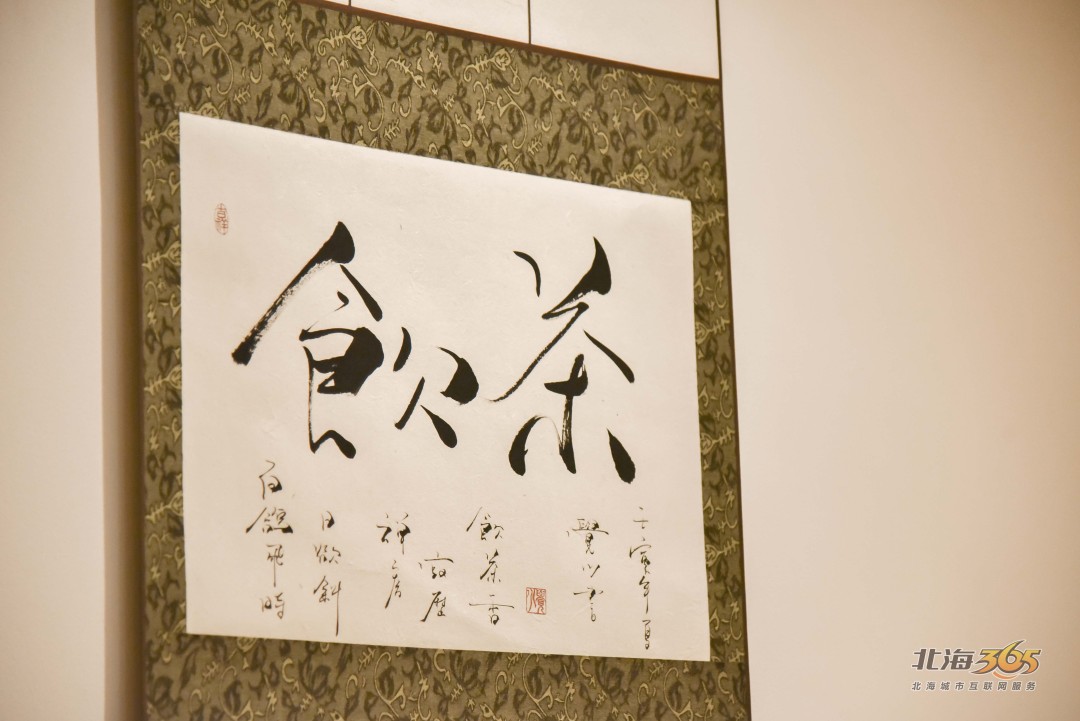 吉祥
飲茶
白鴿飛時
日欲斜
禪房
寂歷
飲茶香
覺心書
壬寅年夏
北海365
北海城市互联网服务